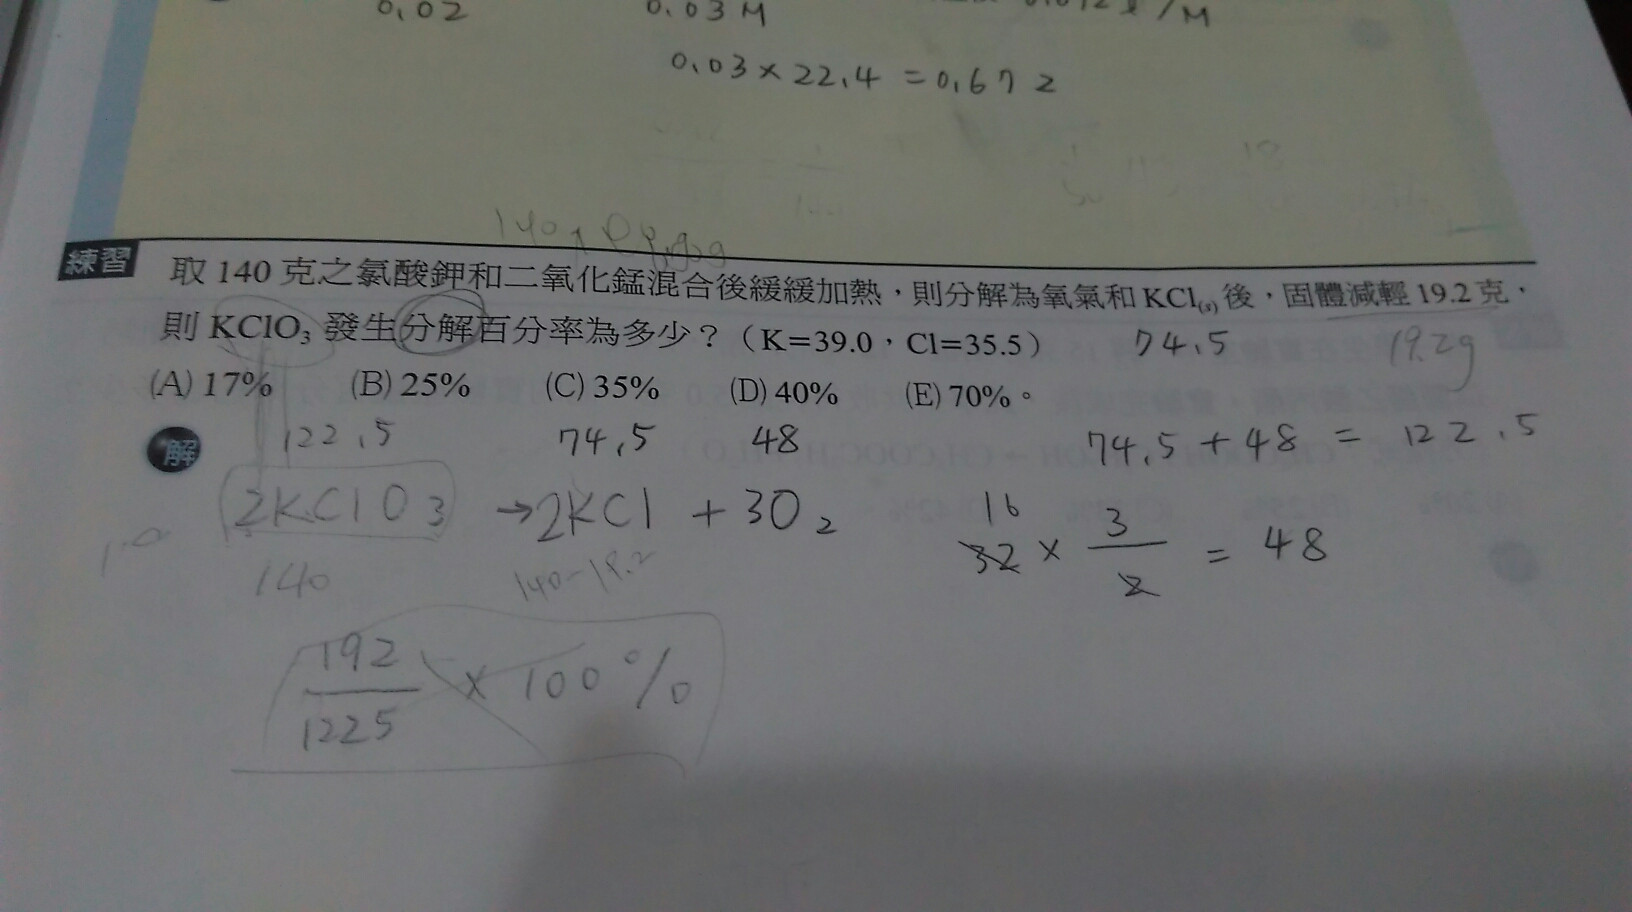 0.02 0.03 M
0.03 × 22.4 = 0.672
練習 取 140 克之氯酸鉀和二氧化錳混合後緩緩加熱，則分解為氧氣和 KCl(s) 後，固體減輕 19.2 克，
則 KClO₃ 發生分解百分率為多少？（K=39.0，Cl=35.5） 74.5 19.2g
(A) 17% (B) 25% (C) 35% (D) 40% (E) 70%。
解 122.5 74.5 48 74.5 + 48 = 122.5
2KClO3 → 2KCl + 3O2 16
32 × 3/2 = 48
140 140-19.2
192/1225 × 100%